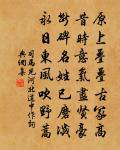 原上壘壘古冢高
昔時意氣盡賢豪
斷碑名姓已磨滅
永日東風吹野蒿
司馬光河北道中作詞
典網集